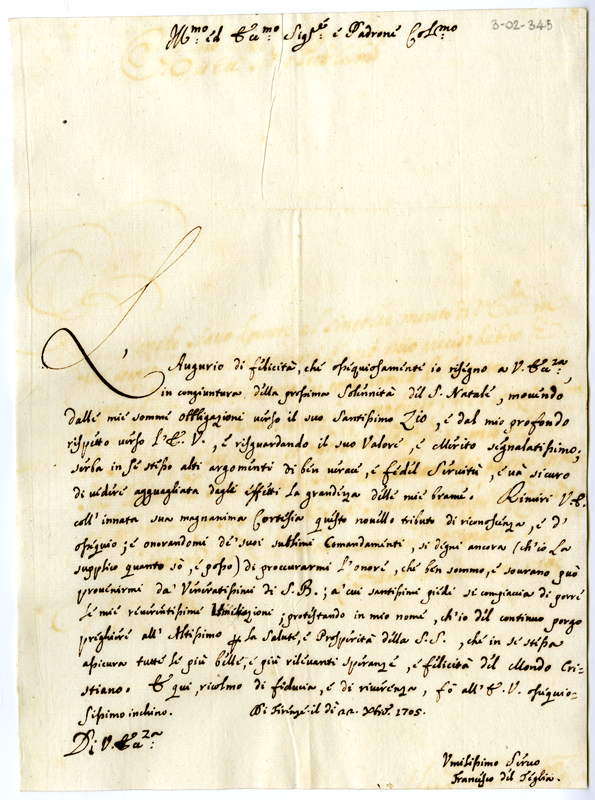 3-02-345
Ill:mo ed Ecc:mo Sig:re e Padrone Col:mo
L'Augurio di felicità, che ossequiosamente io rassegno a V. Ecc:za,
in congiuntura della prossima Solennità del S. Natale, movendo
dalle mie somme obbligazioni verso il suo Santissimo Zio, e dal mio profondo
rispetto verso l'E. V., e risguardando il suo Valore, e Merito segnalatissimo,
serba in se stesso alti argomenti di ben verace, e fedel Servitù, e và sicuro
di vedere agguagliata dagli effetti la grandezza delle mie brame. Rimiri V. E.
coll'innata sua magnanima Cortesia questo novello tributo di riconoscenza, e d'
ossequio; e onorandomi de' suoi sublimi Comandamenti, si degni ancora (ch'io La
supplico quanto sò, e posso) di procurarmi l'onore, che ben sommo, e sovrano può
provenirmi da' Veneratissimi di S. B.; a' cui santissimi piedi si compiaccia di porre
le mie reverentissime Umiliazioni; protestando in mio nome, ch'io del continuo porgo
preghiere all'Altissimo p la Salute, e Prosperità della S. S., che in se stessa
assicura tutte le più belle, e più rilevanti speranze, e felicità del Mondo Cri-
stiano. E qui, ricolmo di fiducia, e di riverenza, fò all'E. V. ossequio-
sissimo inchino. Di Firenze il dì 22. Xbre 1705.
Di V. Ecc:za
Umilissimo Servo
Francesco del Teglia.